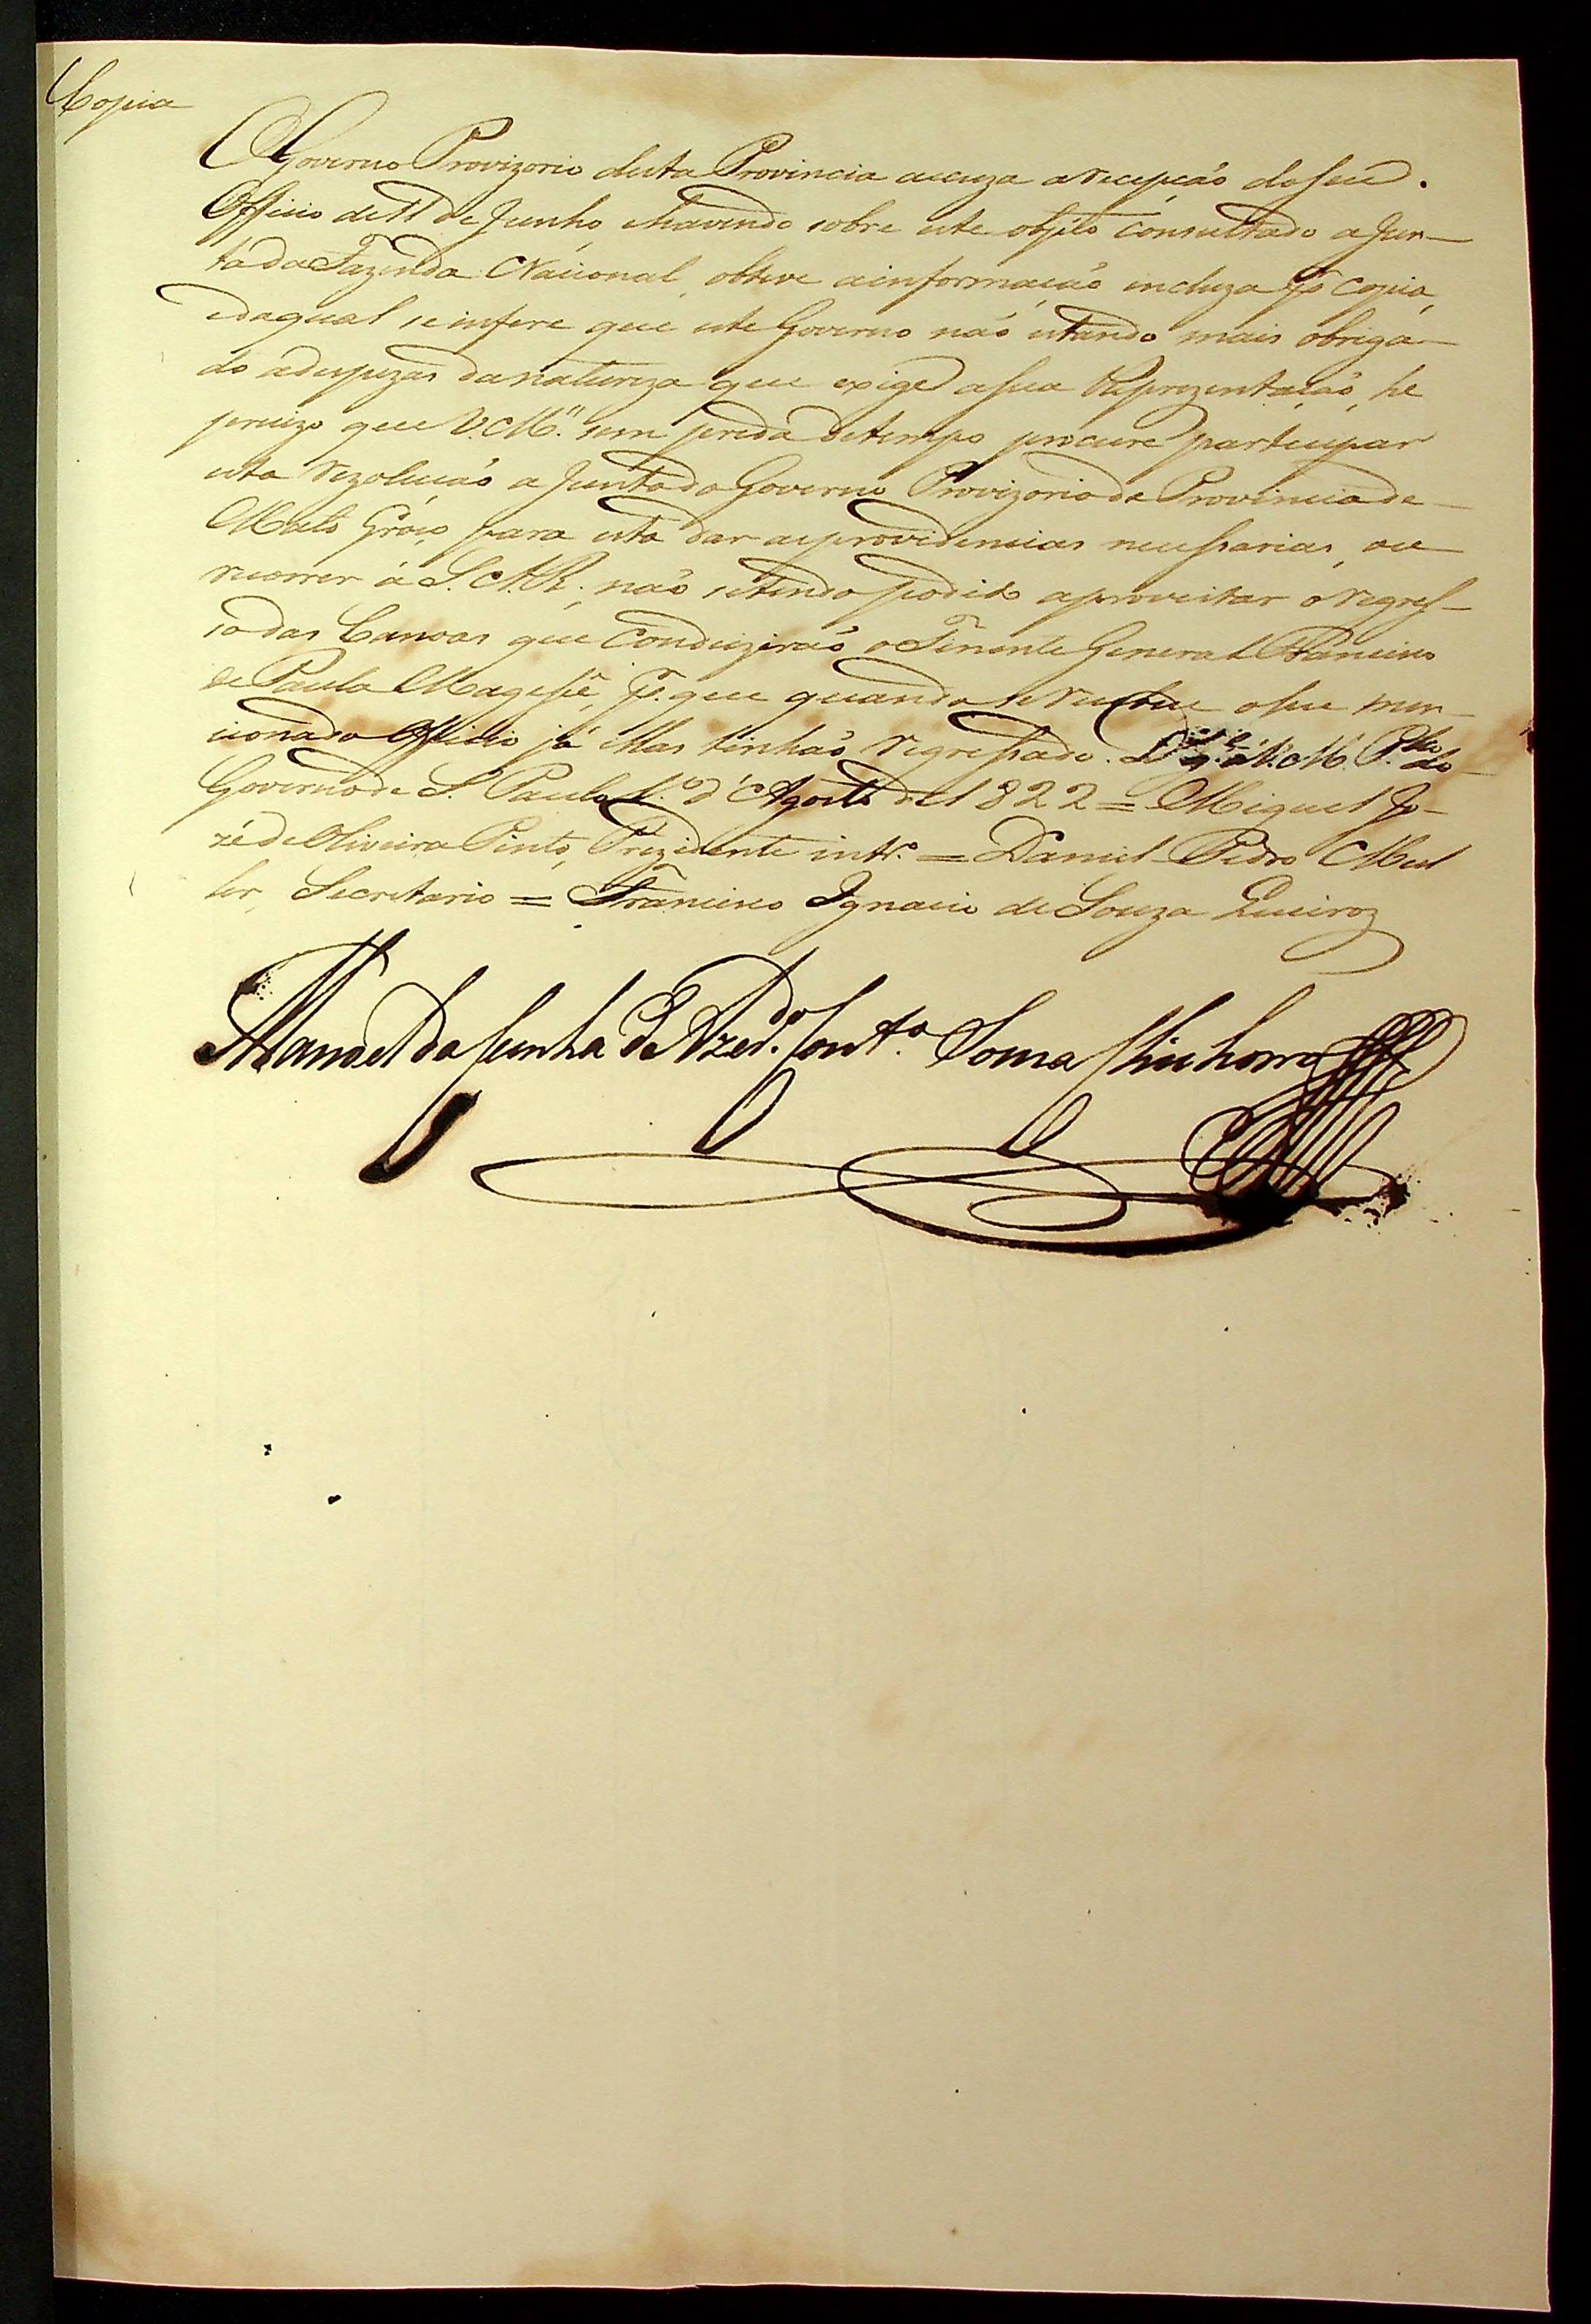 Copia
O Governo Provizorio desta Provincia accuza a recepção do seu
Officio de 11 de Junho, e havendo sobre este objeto consultado a Jun-
ta da Fazenda Nacional, obteve a informação incluza por copia,
e da qual se infere que este Governo não estando mais obriga-
do a despezas da natureza que exige a sua Reprezentação, he
precizo que V. M.ce sem perda de tempo procure participar
esta rezolução a Junta do Governo Provizorio da Provincia de
Mato Groço para esta dar as providencias necessarias, ou
recorrer á S. A. R.; não se tendo podido aproveitar o regres-
so das Canoas que conduzirão o Tenente General Francisco
de Paula Magessi, pr. que quando se recebeu o seu men-
cionado Officio já ellas tinhão regressado. D.s g.e a V. M. P.lo do
Governo de S. Paulo 1.o d'Agosto de 1822 = Miguel Jo-
zé de Oliveira Pinto, Prezidente intr.o = Daniel Pedro Mul
ler, Secretario = Francisco Ignacio de Souza Queiroz
Manoel da Cunha de Azed.do Cout.o Souza Chichorro